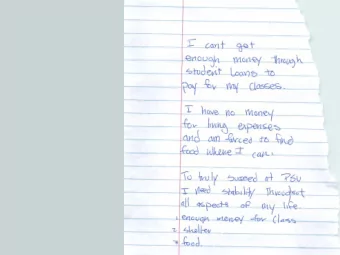 I cant get
enough money through
student loans to
pay for my classes.
I have no money
for living expenses
and am forced to find
food where I can.
To truly succeed at PSU
I need stability throughout
all aspects of my life
1. enough money for class
2. shelter
3. food